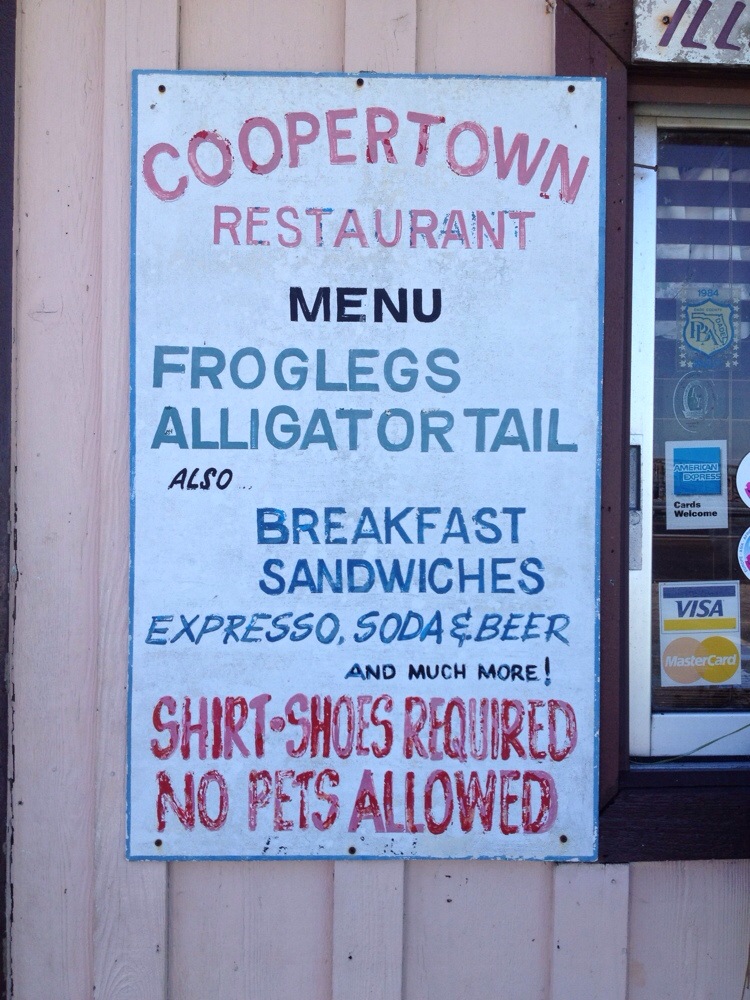 ILL
COOPERTOWN
RESTAURANT
MENU
FROGLEGS
ALLIGATOR TAIL
ALSO...
BREAKFAST
SANDWICHES
EXPRESSO, SODA & BEER
AND MUCH MORE!
SHIRT•SHOES REQUIRED
NO PETS ALLOWED
1984
DADE
PBA
AMERICAN
EXPRESS
Cards
Welcome
VISA
MasterCard